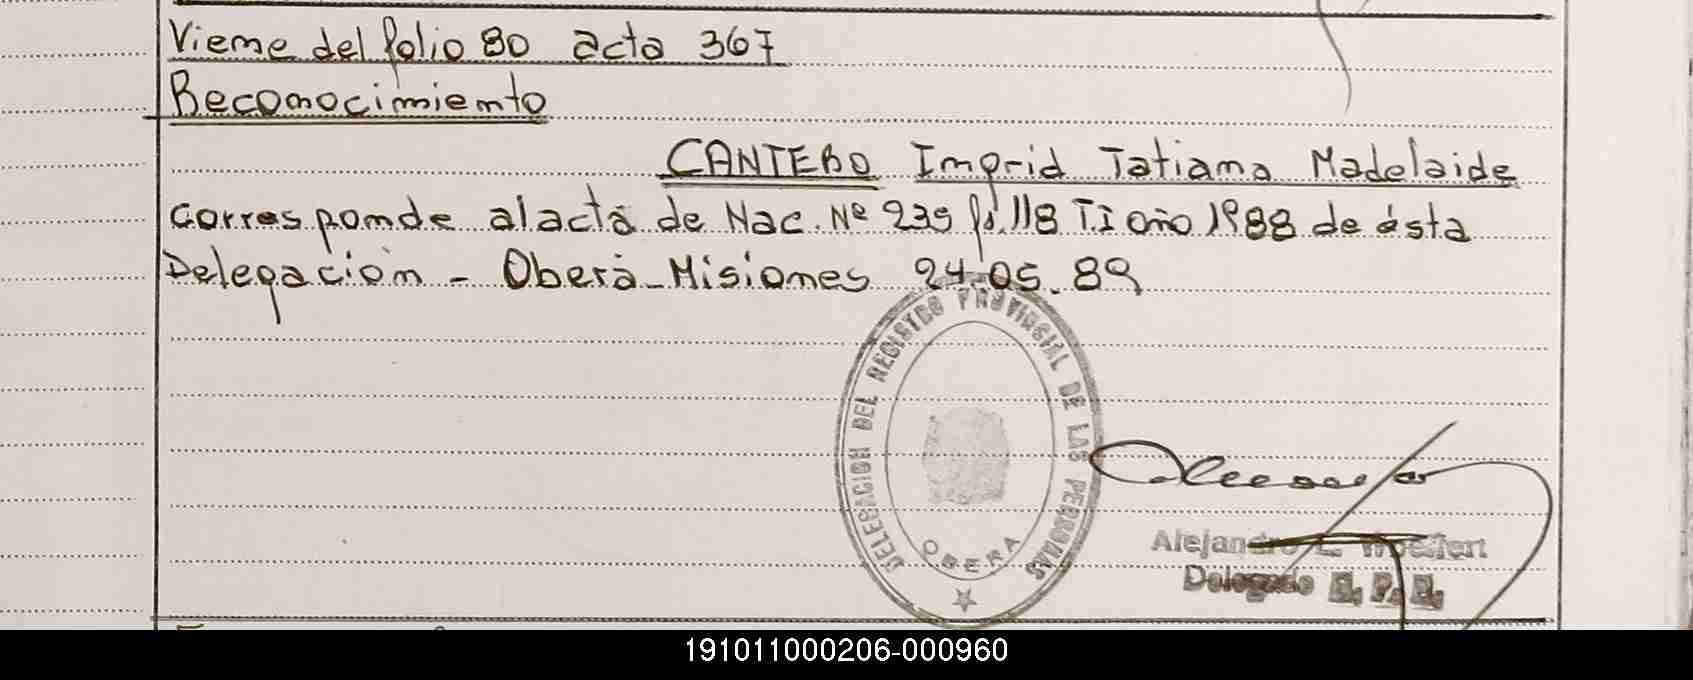 Viene del folio 80 acta 367
Reconocimiento
CANTERO Ingrid Tatiana Madelaide
corresponde al acta de Nac. Nº 239 fº 118 T.I año 1988 de ésta
Delegación - Oberá - Misiones 24-05-89
DELEGACION DEL REGISTRO PROVINCIAL DE LAS PERSONAS
OBERA
Alejandro L.
Delegado R. P. P.
191011000206-000960